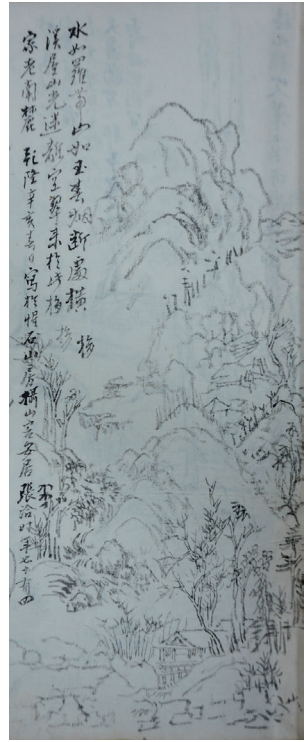 水如羅帶山如玉春烟斷處橫
溪屋山光迷離空翠來於此梅
家老 乾隆辛亥春日寫於惺石山房攝山 客居 張洽時年七十有四